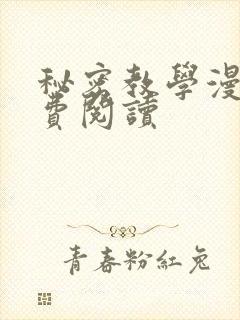 秘密教學漫
費閱讀
青春粉紅兔